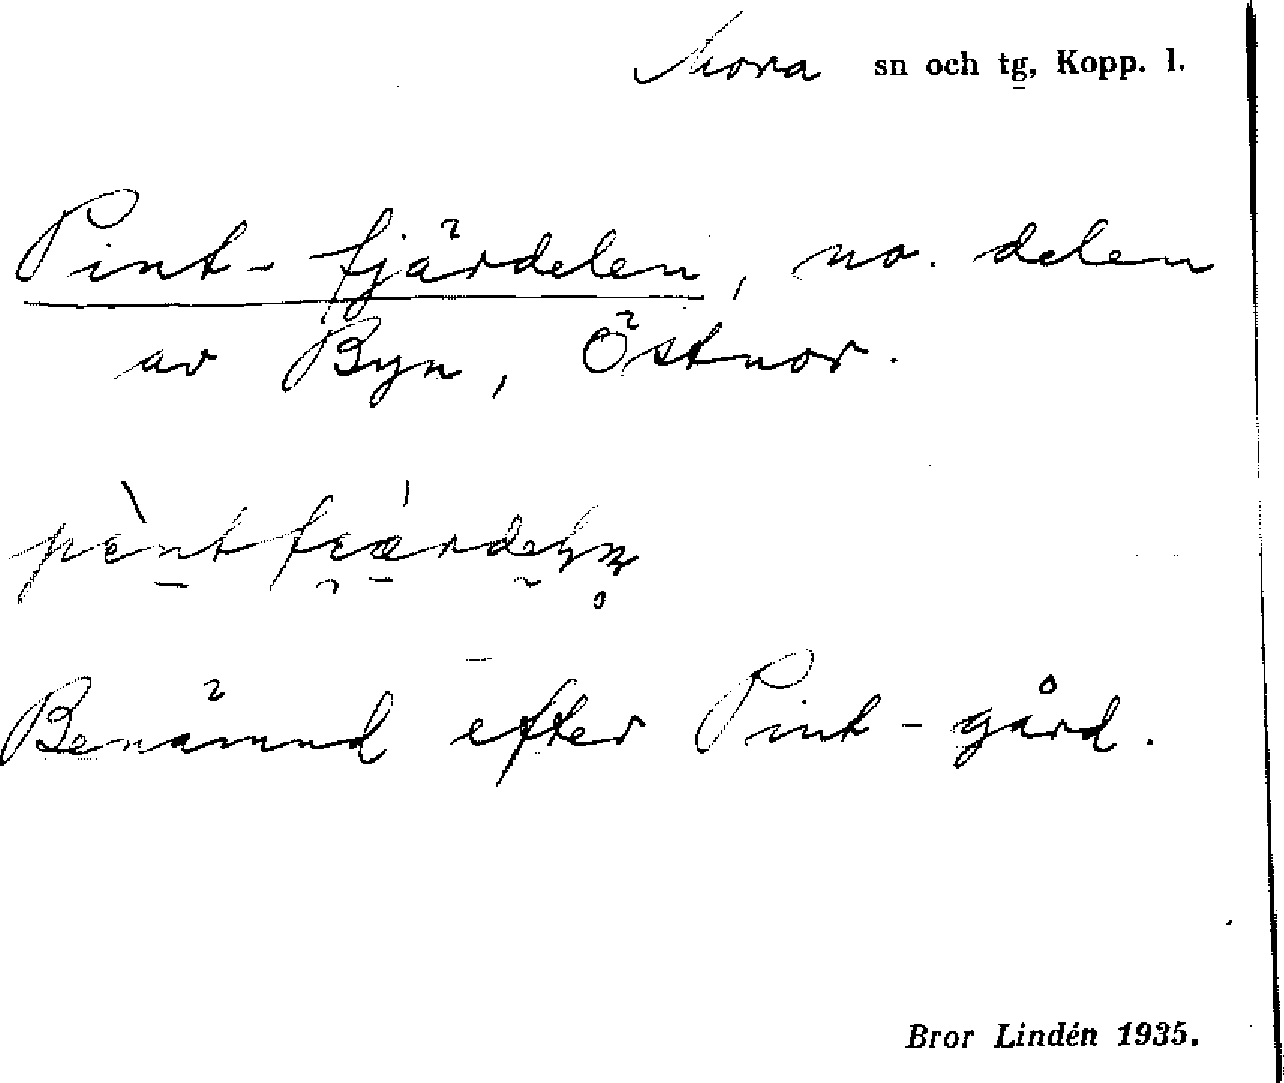 Mora sn och tg, Kopp. l.
Pint-fjärdelen, no. delen
av Byn, Östnor.
Benämnd efter Pint-gård.
Bror Lindén 1935.